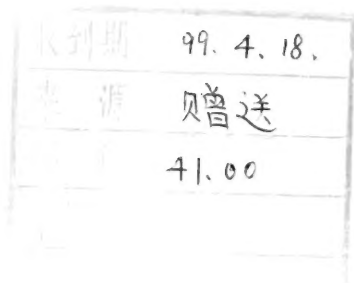 收到期 99.4.18.
来源 赠送
41.00